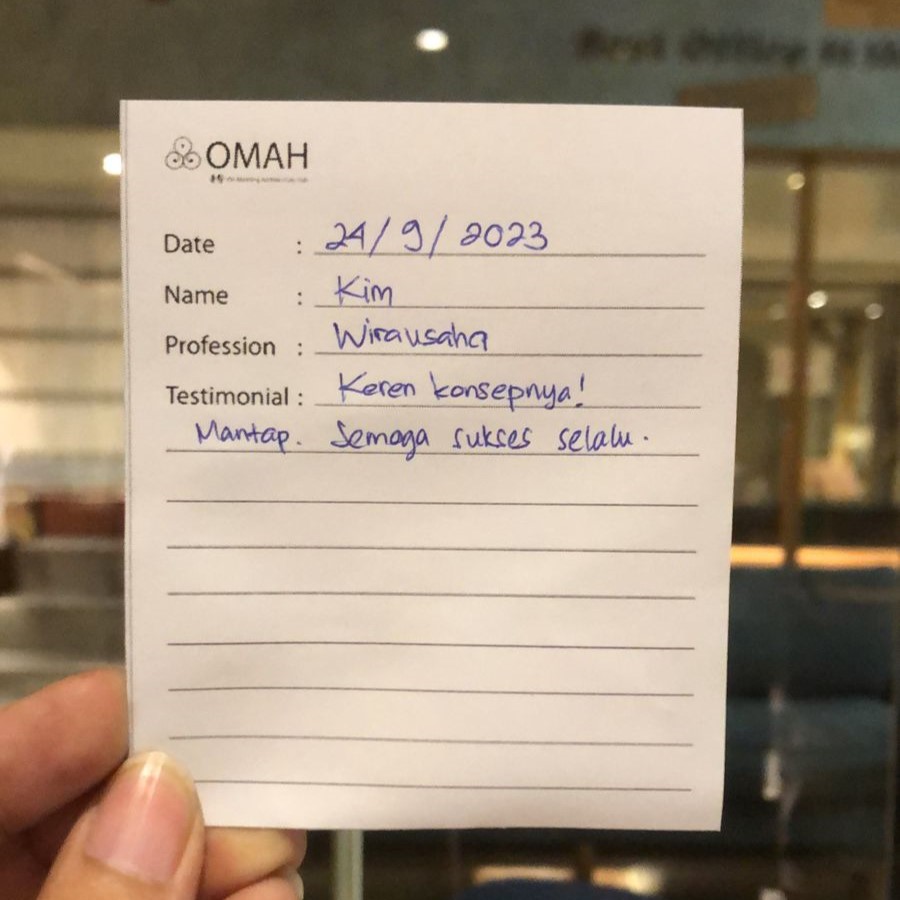 OMAH
Date : 24/9/2023
Name : Kim
Profession : Wirausaha
Testimonial : Keren konsepnya!
Mantap. Semoga sukses selalu.